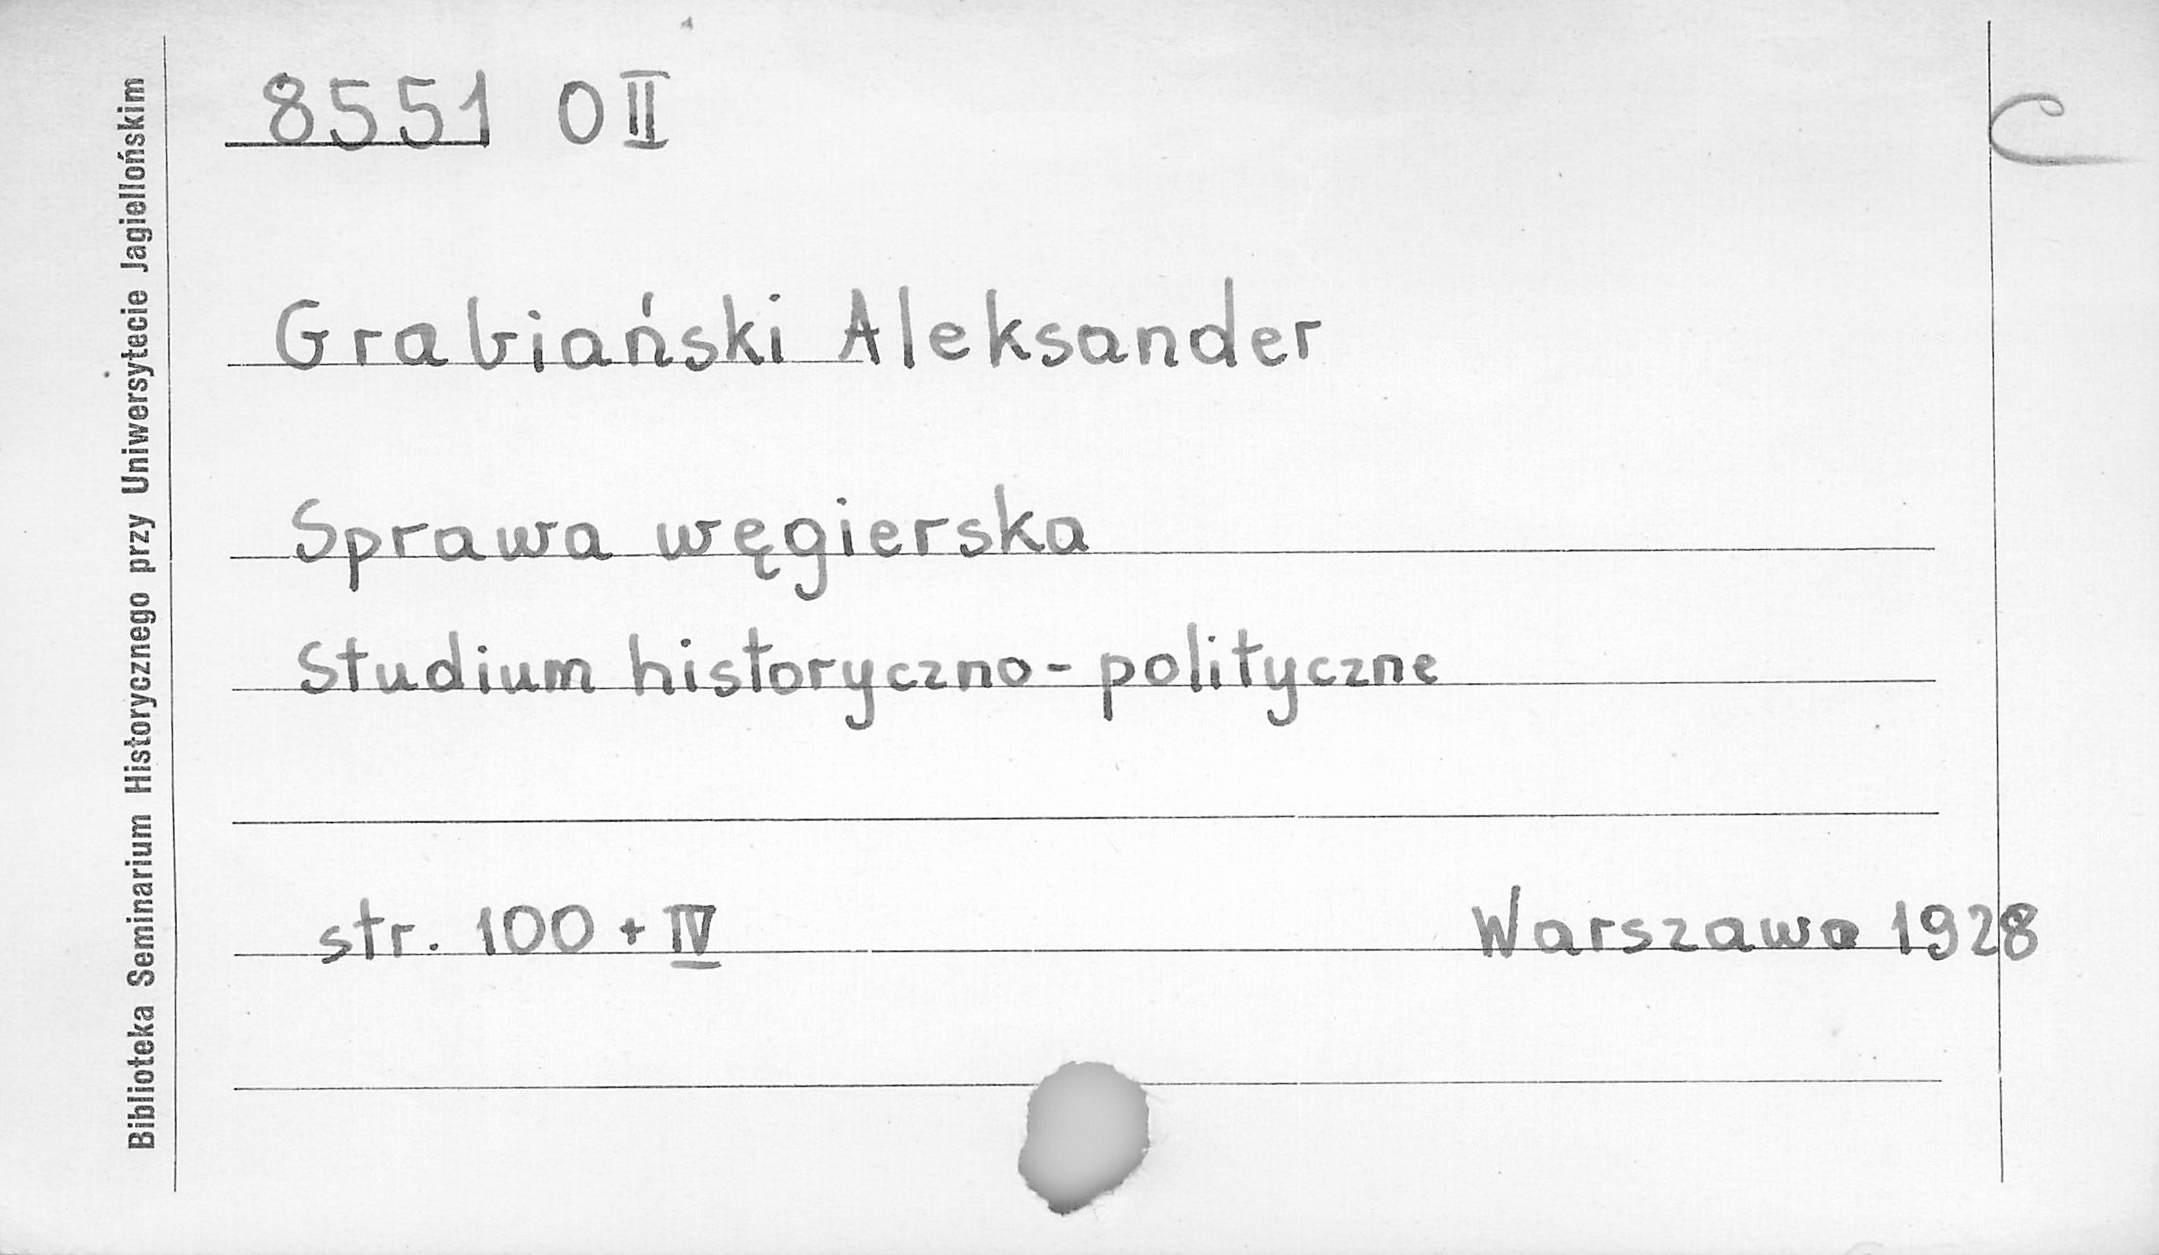 8551 O II
C
Grabiański Aleksander
Sprawa węgierska
Studium historyczno-polityczne
str. 100 + IV Warszawa 1928
Biblioteka Seminarium Historycznego przy Uniwersytecie Jagiellońskim